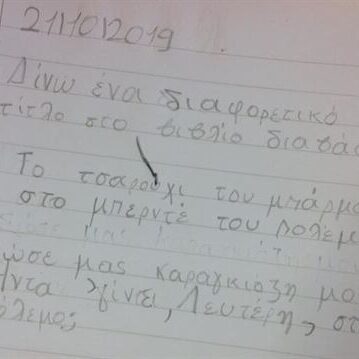 21/10/2019
Δίνω ένα διαφορετικό
τίτλο στο βιβλίο διαβάσ
Το τσαρούχι του μπάρμ
στο μπερντέ του πολέμ
ώσε μας καραγκιόζη μο
Πάντα γίνει, Λευτέρη, στ
όλεμο;